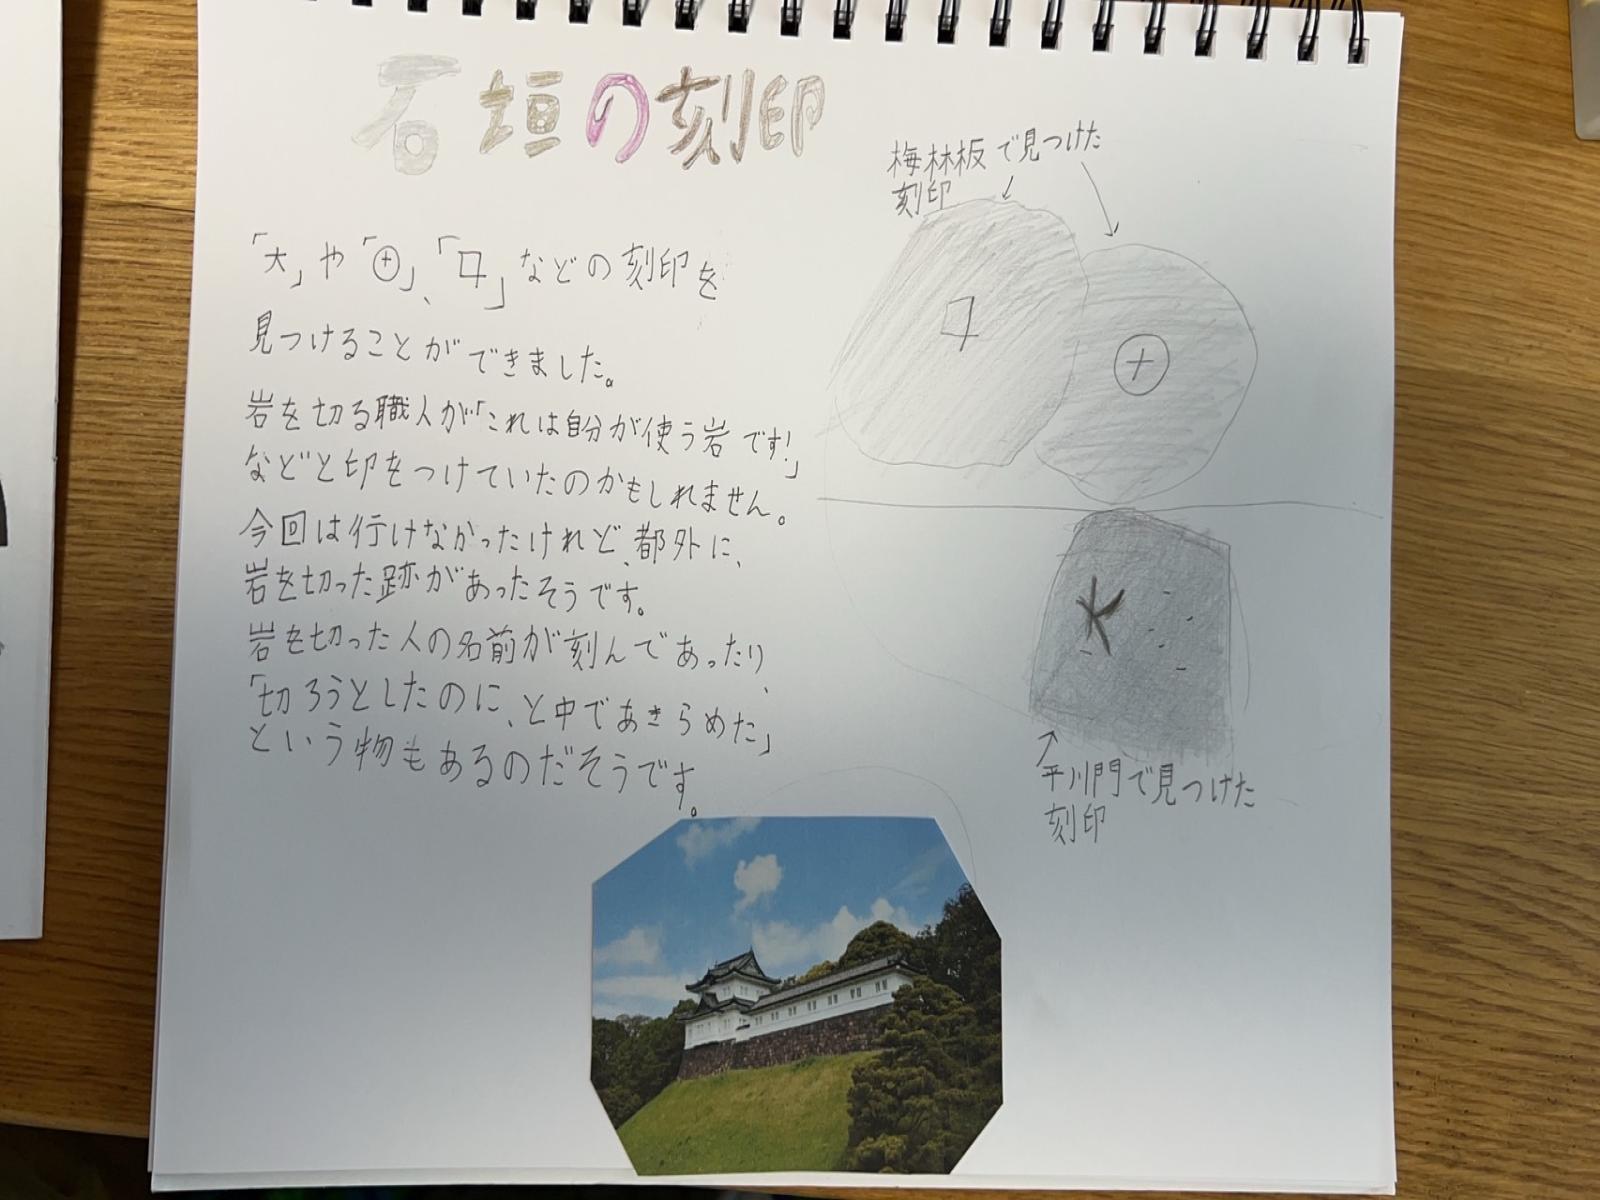 石垣の刻印
梅林板で見つけた
刻印
「大」や「⊕」、「口」などの刻印を
見つけることができました。
岩を切る職人が「これは自分が使う岩です!」
などと印をつけていたのかもしれません。
今回は行けなかったけれど、都外に、
岩を切った跡があったそうです。
岩を切った人の名前が刻んであったり、
「切ろうとしたのに、と中であきらめた」
という物もあるのだそうです。
平川門で見つけた
刻印